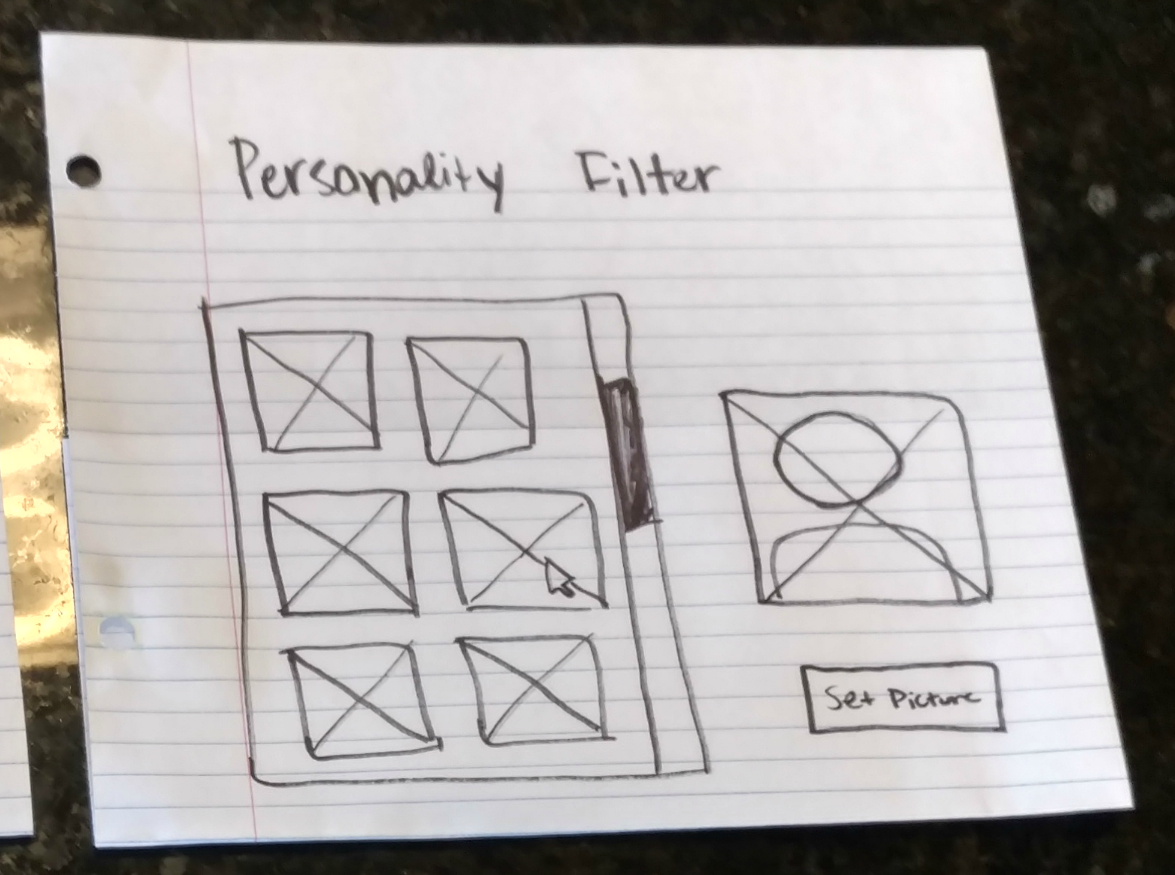 Personality Filter
Set Picture